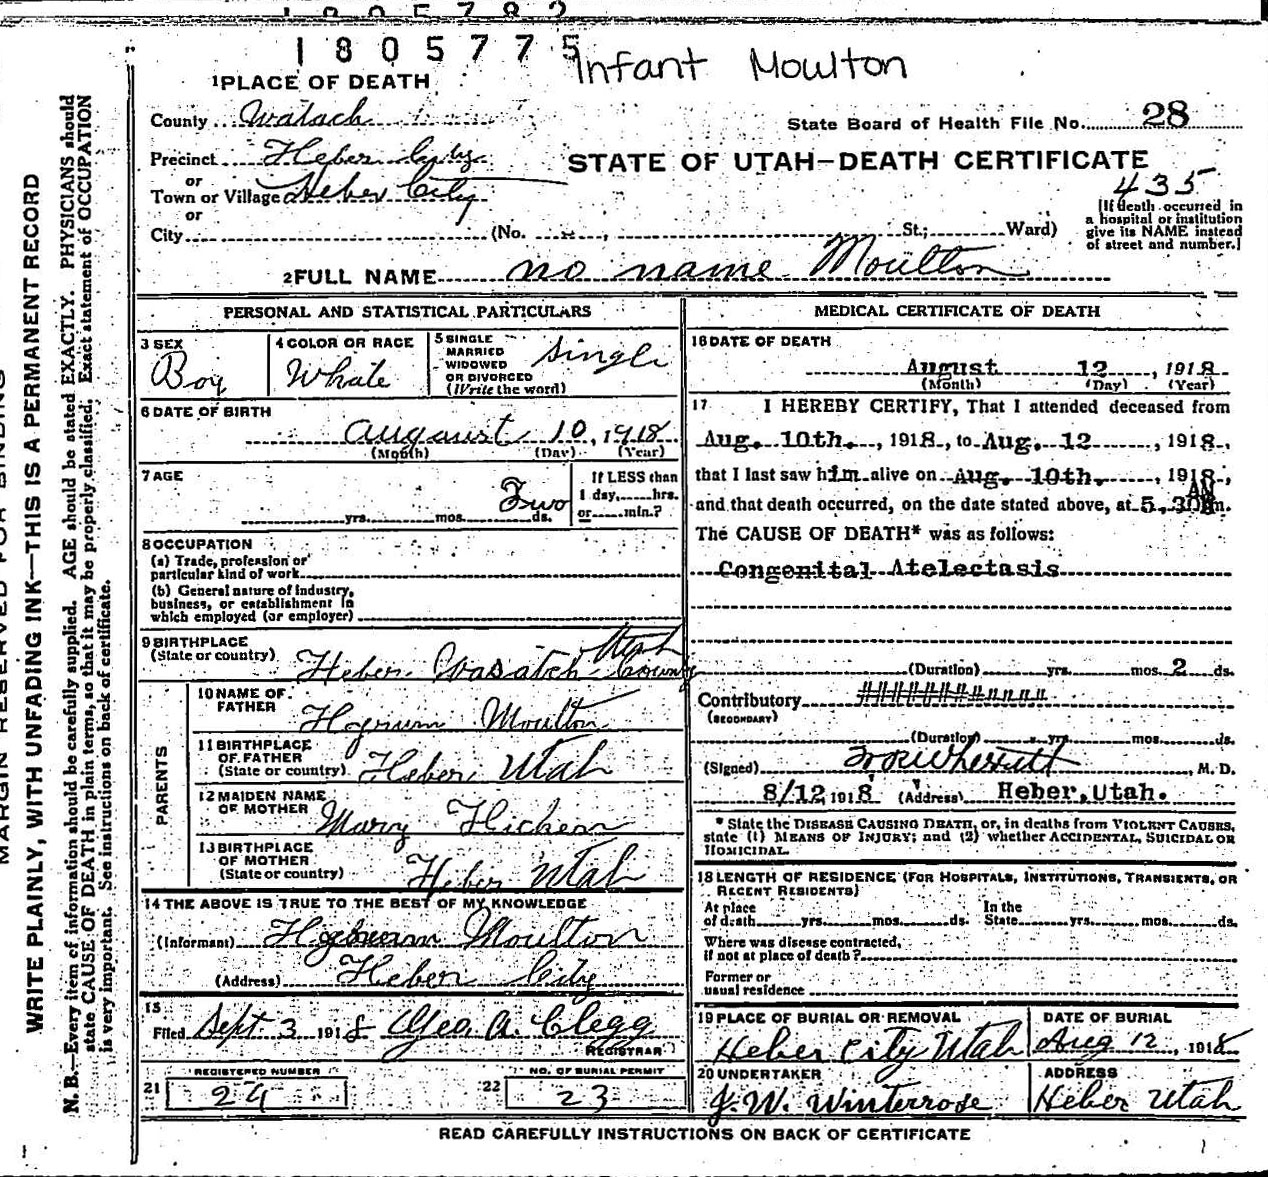 1805782
1805775
Infant Moulton
1 PLACE OF DEATH
County Watach
State Board of Health File No. 28
Precinct Heber City
STATE OF UTAH—DEATH CERTIFICATE
or
Town or Village Heber City
435
or
City (No. , St.; Ward)
[If death occurred in
a hospital or institution
give its NAME instead
of street and number.]
2 FULL NAME no name Moulton
PERSONAL AND STATISTICAL PARTICULARS
3 SEX
Boy
4 COLOR OR RACE
White
5 SINGLE
MARRIED
WIDOWED
OR DIVORCED
(Write the word)
Single
6 DATE OF BIRTH
August 10, 1918
(Month) (Day) (Year)
7 AGE
Two
yrs. mos. ds.
If LESS than
1 day, hrs.
or min.?
8 OCCUPATION
(a) Trade, profession or
particular kind of work
(b) General nature of industry,
business, or establishment in
which employed (or employer)
9 BIRTHPLACE
(State or country)
Heber Wasatch County Utah
PARENTS
10 NAME OF
FATHER
Hyrum Moulton
11 BIRTHPLACE
OF FATHER
(State or country)
Heber Utah
12 MAIDEN NAME
OF MOTHER
Mary Hicken
13 BIRTHPLACE
OF MOTHER
(State or country)
Heber Utah
14 THE ABOVE IS TRUE TO THE BEST OF MY KNOWLEDGE
(Informant) Hyrum Moulton
(Address) Heber City
15
Filed Sept 3 1918 Geo A. Clegg
REGISTRAR
REGISTERED NUMBER
21 24
NO. OF BURIAL PERMIT
22 23
MEDICAL CERTIFICATE OF DEATH
16 DATE OF DEATH
August 12, 1918
(Month) (Day) (Year)
17 I HEREBY CERTIFY, That I attended deceased from
Aug. 10th., 1918, to Aug. 12, 1918,
that I last saw him alive on Aug. 10th., 1918,
and that death occurred, on the date stated above, at 5.30 AM m.
The CAUSE OF DEATH* was as follows:
Congenital Atelectasis
(Duration) yrs. mos. 2 ds.
Contributory ###########
(SECONDARY)
(Duration) yrs. mos. ds.
(Signed) M. D.
8/12, 1918 (Address) Heber, Utah.
* State the DISEASE CAUSING DEATH, or, in deaths from VIOLENT CAUSES,
state (1) MEANS OF INJURY; and (2) whether ACCIDENTAL, SUICIDAL OR
HOMICIDAL.
18 LENGTH OF RESIDENCE (FOR HOSPITALS, INSTITUTIONS, TRANSIENTS, OR
RECENT RESIDENTS)
At place
of death yrs. mos. ds.
In the
State yrs. mos. ds.
Where was disease contracted,
if not at place of death?
Former or
usual residence
19 PLACE OF BURIAL OR REMOVAL
Heber City Utah
DATE OF BURIAL
Aug 12, 1918
20 UNDERTAKER
J. W. Winterrose
ADDRESS
Heber Utah
READ CAREFULLY INSTRUCTIONS ON BACK OF CERTIFICATE
MARGIN RESERVED FOR BINDING
WRITE PLAINLY, WITH UNFADING INK—THIS IS A PERMANENT RECORD
N. B.—Every item of information should be carefully supplied. AGE should be stated EXACTLY. PHYSICIANS should
state CAUSE OF DEATH in plain terms, so that it may be properly classified. Exact statement of OCCUPATION
is very important. See instructions on back of certificate.